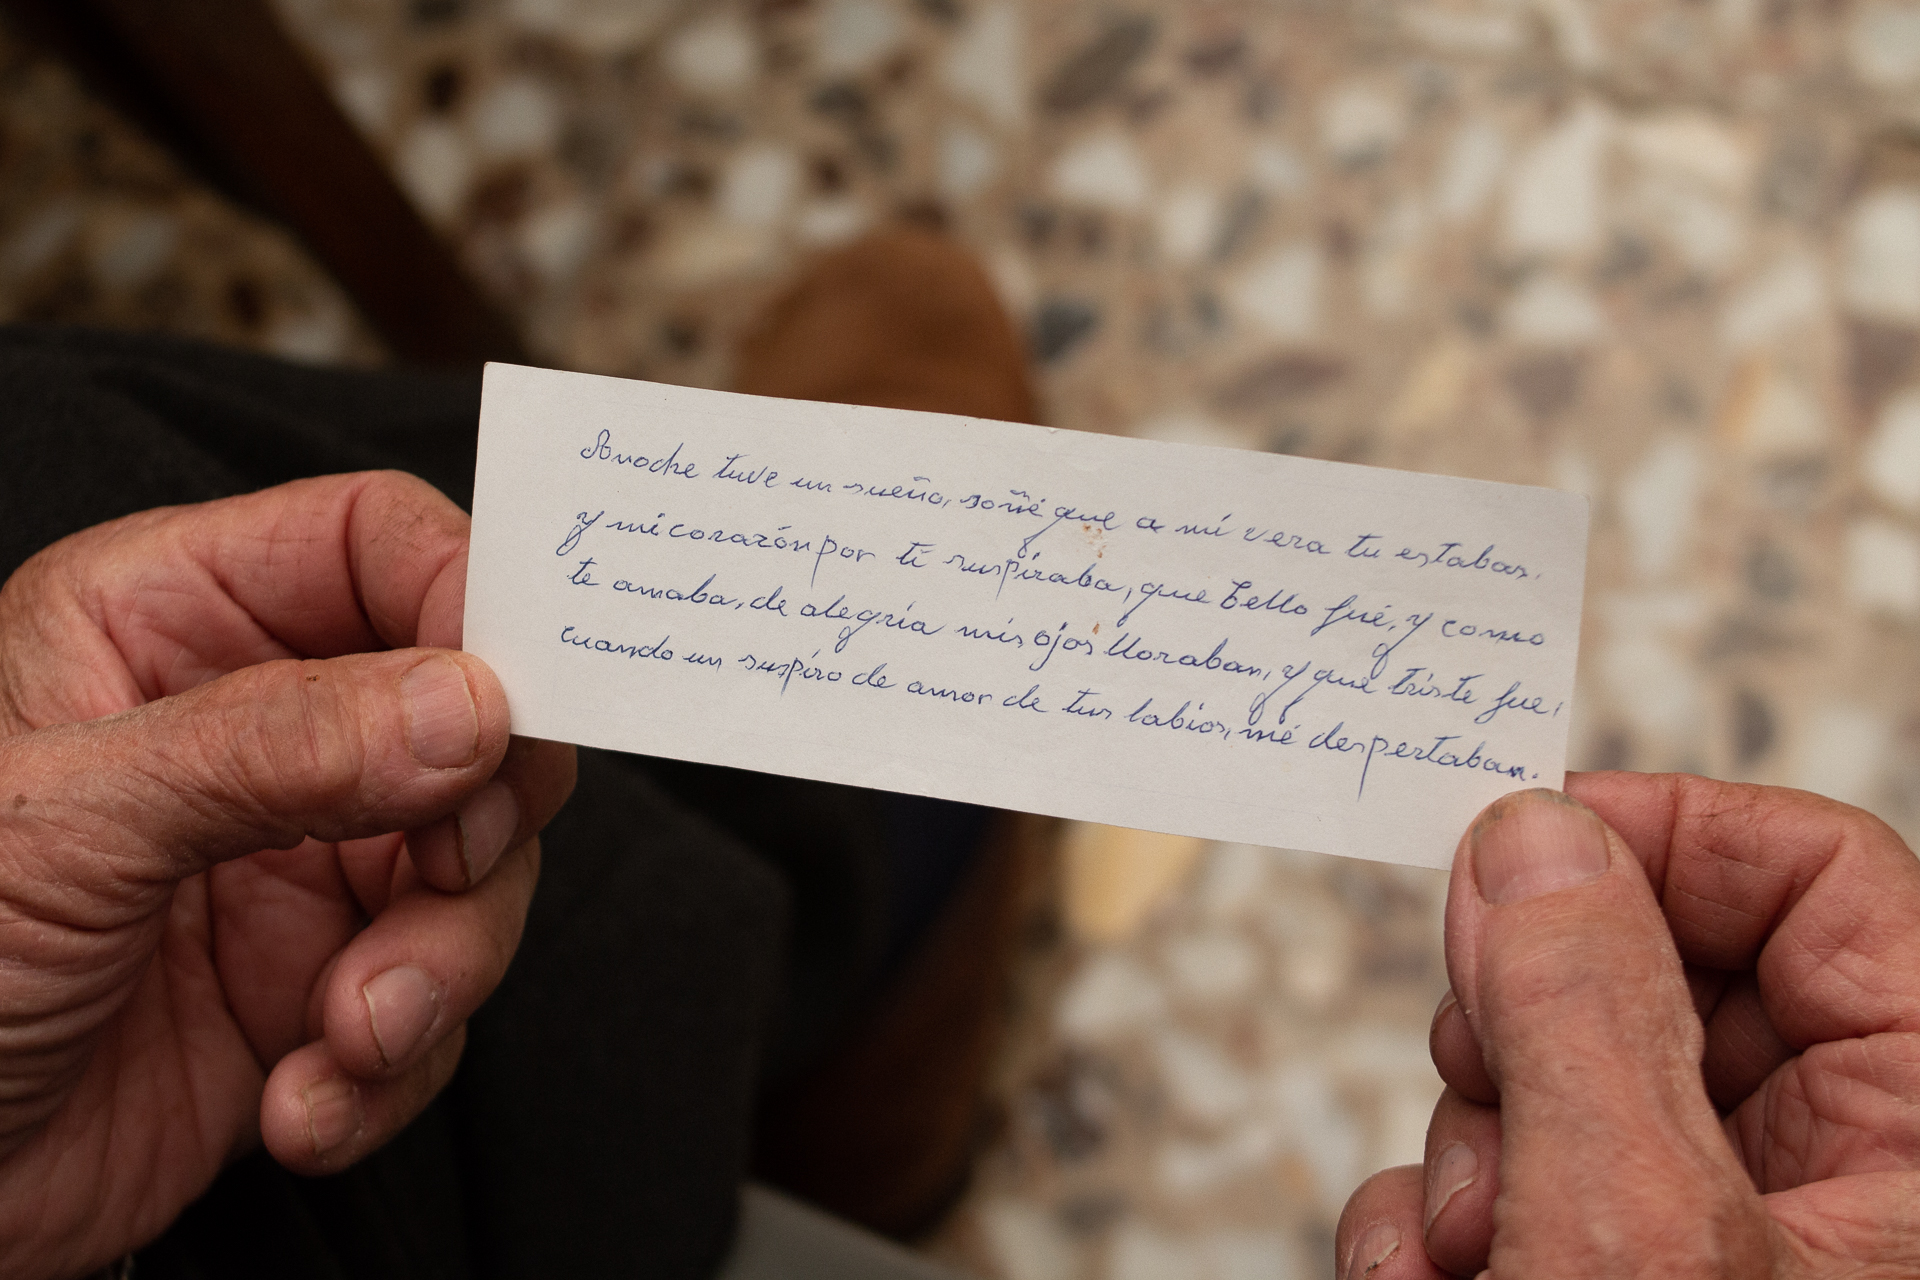 Anoche tuve un sueño, soñé que a mi vera tu estabas,
y mi corazón por ti suspiraba, que bello fué, y como
te amaba, de alegría mis ojos lloraban, y que triste fue,
cuando un suspiro de amor de tus labios, mé despertaban.